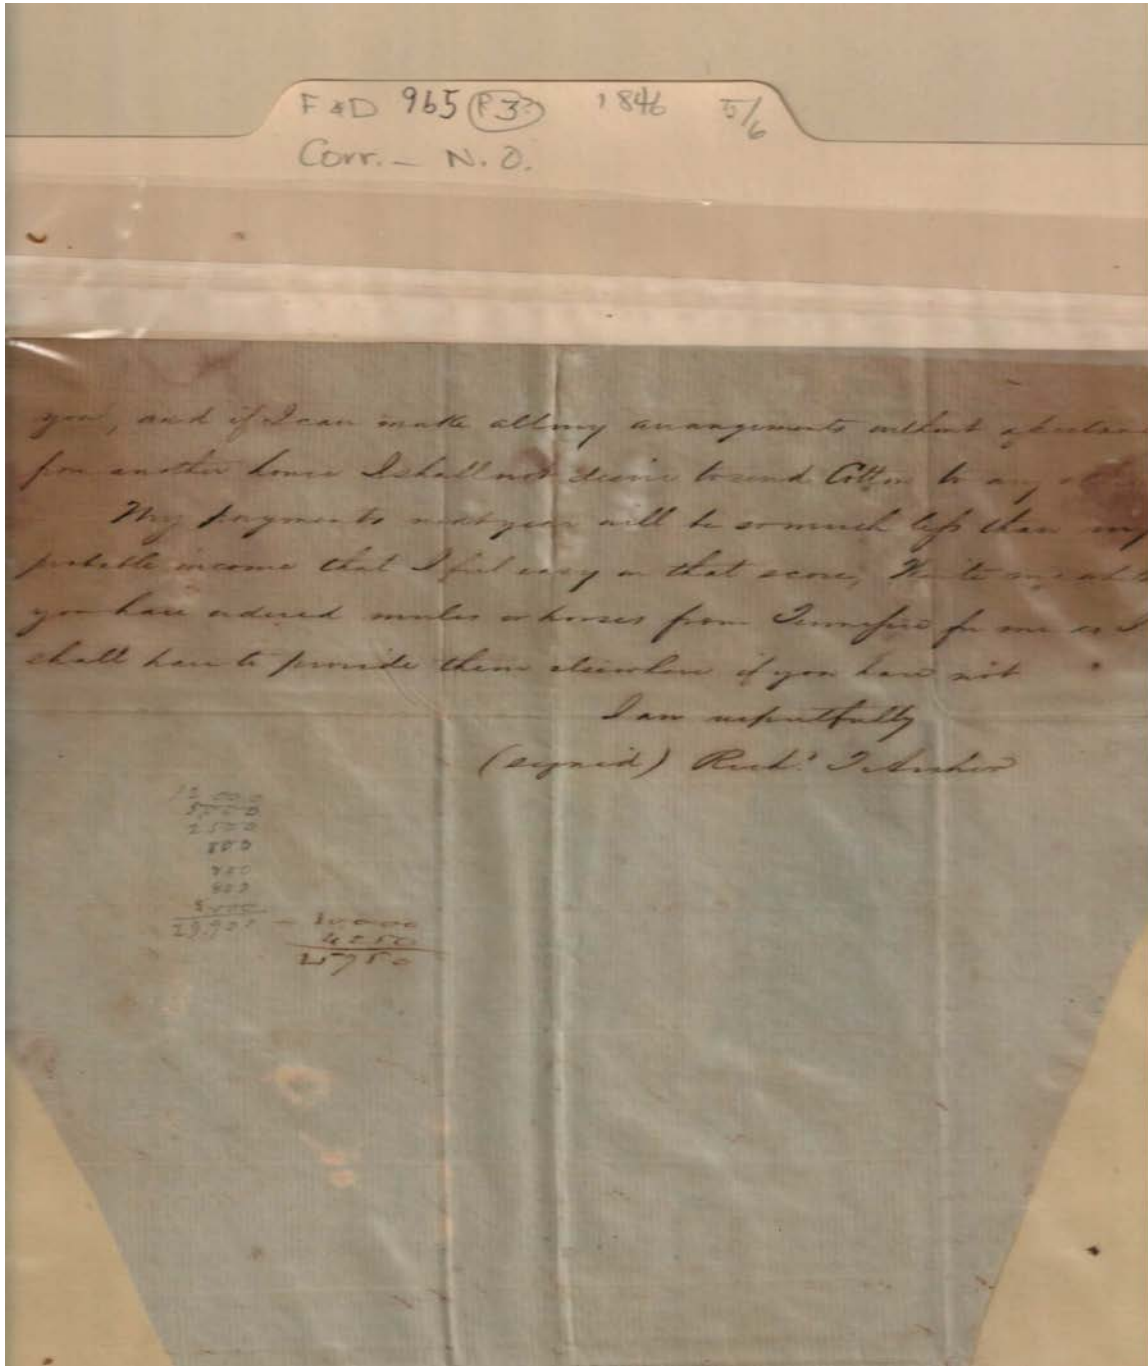 F & D 965 (P 3) 1846 5/6
Corr. — N. O.
you, and if I can make all my arrangements without
from another house I shall not desire to send Cotton to any
My payments next year will be so much less than my
probable income that I feel easy on that score, Write me
you have ordered mules or horses from Tennessee for me as I
shall have to provide them elsewhere if you have not
I am respectfully
(signed) Richd T Archer
2500
800
800
800
29,900 — 30,000
4250
25750